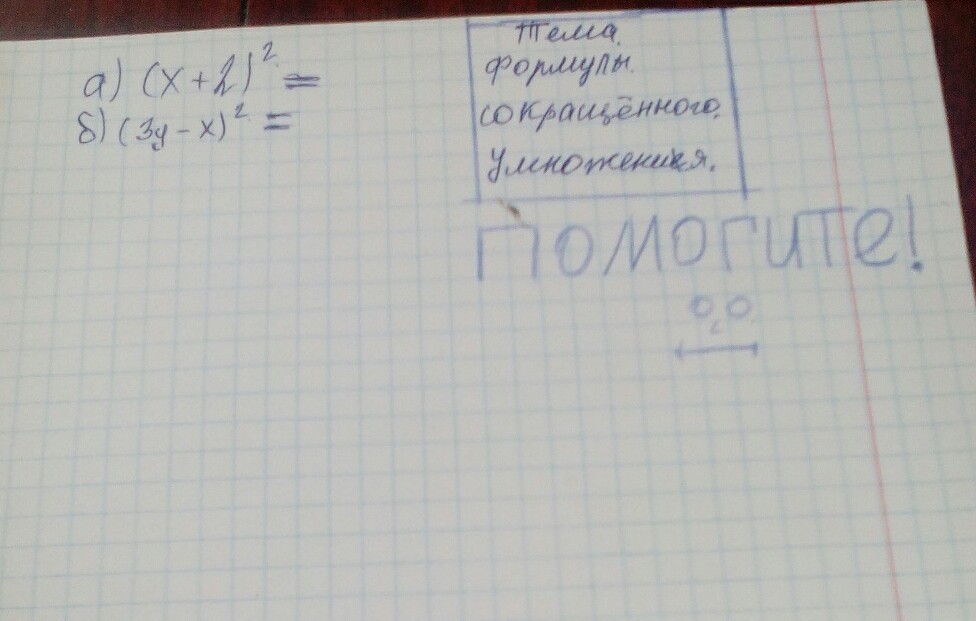 а) (х+2)² =
б) (3у-х)² =
Тема.
формулы.
сокращённого.
Умножения.
ПОМОГИТЕ!
0,0